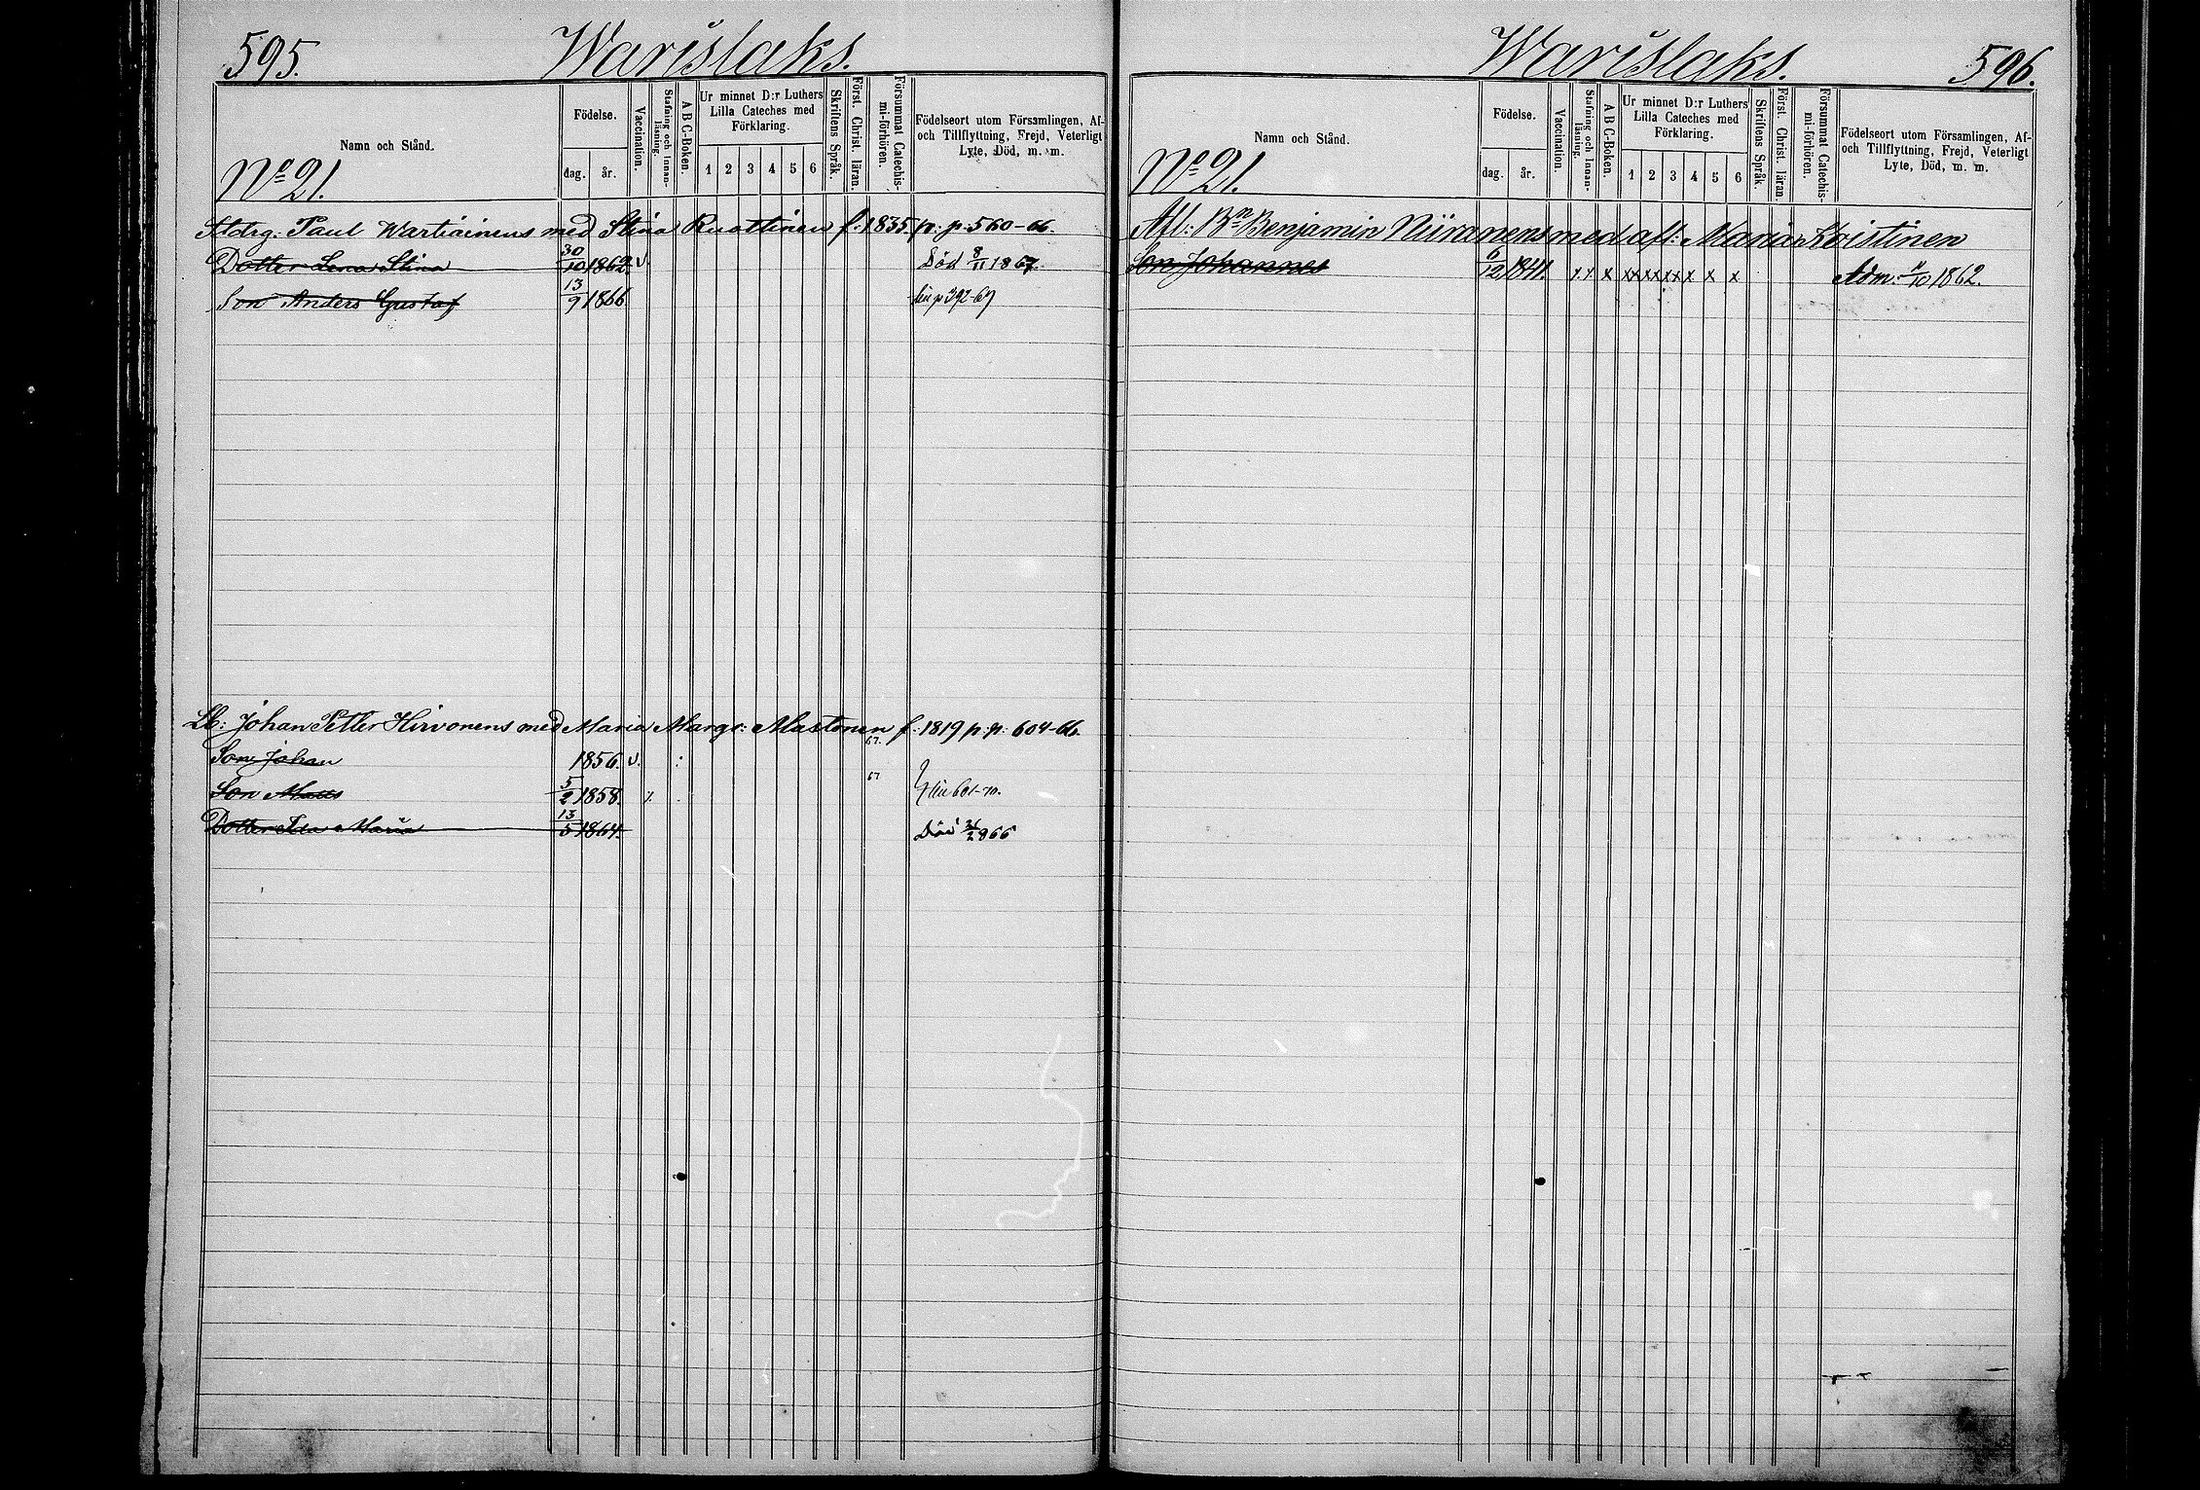 595. Warislaks.
Namn och Stånd.
Födelse.
dag. år.
Vaccination.
Stafning och Innan-läsning.
A B C-Boken.
Ur minnet D:r Luthers
Lilla Cateches med
Förklaring.
1 2 3 4 5 6
Skriftens Språk.
Först. Christ. läran.
Försummat Catechis-
mi-förhören.
Födelseort utom Församlingen, Af-
och Tillflyttning, Frejd, Veterligt
Lyte, Död, m. m.
No 21.
Paul Wartiainens med Stina Ruottinen f: 1835 p. p. 560-66.
Dotter Lena Stina 30/10 1862 v. Död 8/11 1867.
Son Anders Gustaf 13/9 1866 p 392-67
Johan Petter Hirvonens med Maria Margr: Mustonen f: 1819 p: p: 604-66.
67.
Son Johan 1856. v.
67
Son Matts 5/2 1858. 601-70.
Dotter Ida Maria 13/5 1864. Död 26/2 866
Warislaks. 596.
Namn och Stånd.
Födelse.
dag. år.
Vaccination.
Stafning och Innan-läsning.
A B C-Boken.
Ur minnet D:r Luthers
Lilla Cateches med
Förklaring.
1 2 3 4 5 6
Skriftens Språk.
Först. Christ. läran.
Försummat Catechis-
mi-förhören.
Födelseort utom Församlingen, Af-
och Tillflyttning, Frejd, Veterligt
Lyte, Död, m. m.
No 21.
Afl: Bn Benjamin Niiranens med afl: Maria Koistinen
Son Johannes 6/12 1841. x x x xx xx xx x x x Adm. 11/10 1862.